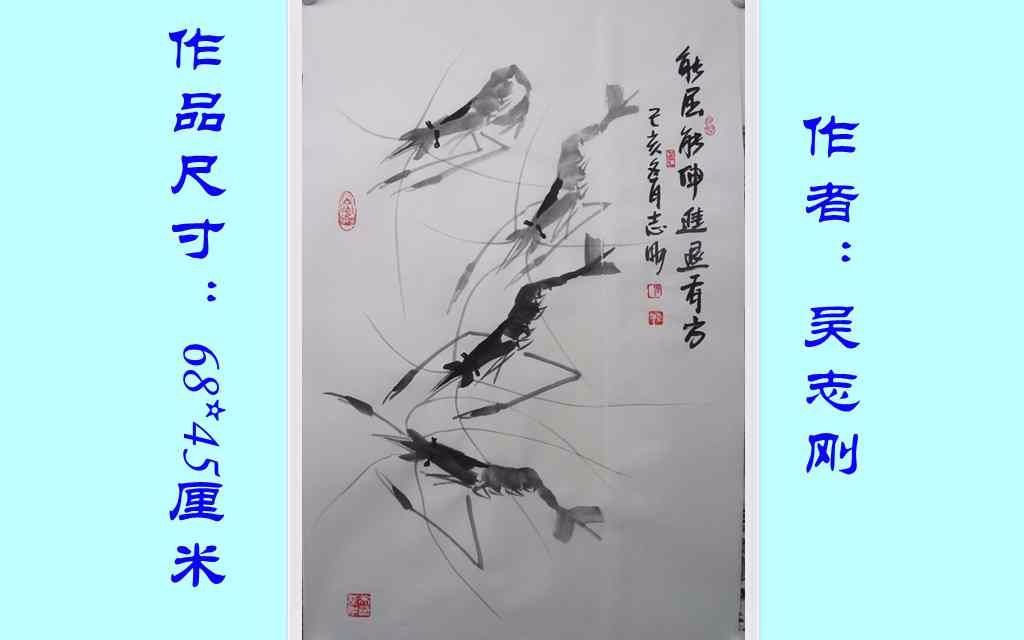 作品尺寸：68*45厘米
能屈能伸進退有方
己亥冬月志刚
作者：吴志刚